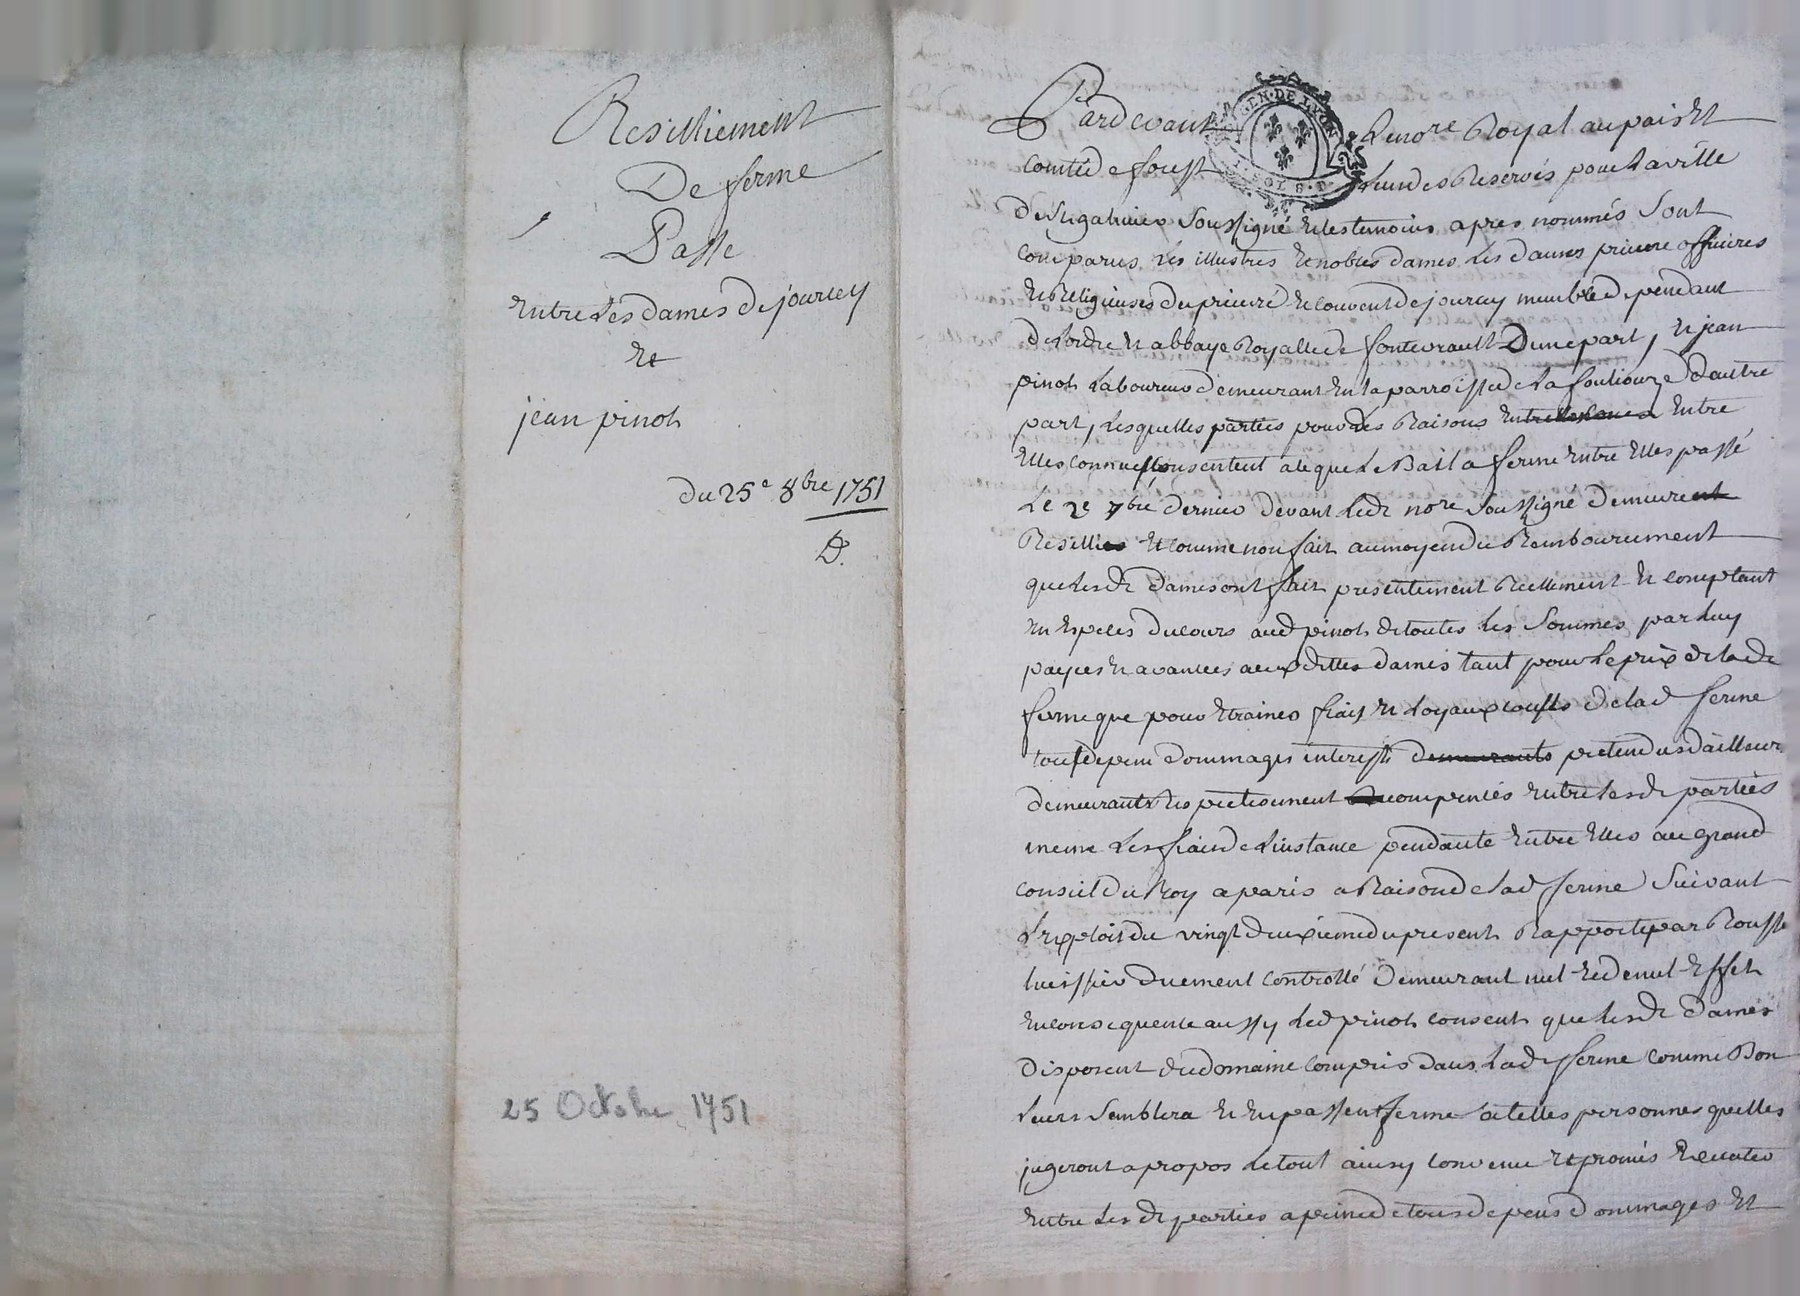 Resilliement
De ferme
Passe
entre les dames de jourcey
et
jean pinoh
du 25e 8bre 1751
D.
25 Octobre 1751
GEN. DE LYON
SOLS
Pardevant Le nore Royal au pais et
comté de forest des Reservés pour la ville
de st galmier soussigné et les temoins apres nommés sont
comparus Les illustres et nobles dames Les dames prieure officieres
et Religieuses du prieuré et couvent de jourcey membre dependant
de Lordre et abbaye Royalle de fontevrault Dune part, et jean
pinoh Laboureur demeurant en la parroisse de la fouliouze dautre
part, Lesquelles parties pour des Raisons entre
elles connues consentent a ce que Le Bail a ferme entre elles passé
Le 2e 7bre dernier devant Ledt nore soussigné demeure
Resillié et comme non fait au moyen du Remboursement
que lesdt dames ont fait presentement Reellement et comptant
en especes du cours aud pinoh de toutes Les sommes par luy
payees et avancees aux dittes dames tant pour Le prix de lade
ferme que pour etraines frais et Loyaux cousts de lad ferme
tous depens dommages interests demeurants pretendus dailleurs
demeurants respectivement compensés entre lesdt parties
meme Les frais de Linstance pendante entre elles au grand
conseil du Roy a paris a Raison de lad ferme suivant
Lexploit du vingt deuxieme du present Rapporté par Rousse
huissier duement controllé demeurant nul et de nul effet
en consequence aussy Led pinoh consent que lesdt dames
disposent du domaine compris dans Lad ferme comme Bon
Leurs semblera et en passent ferme a telles personnes quelles
jugeront a propos Le tout ainsy convenu et promis executer
entre Les dt parties a peine de tous depens dommages et